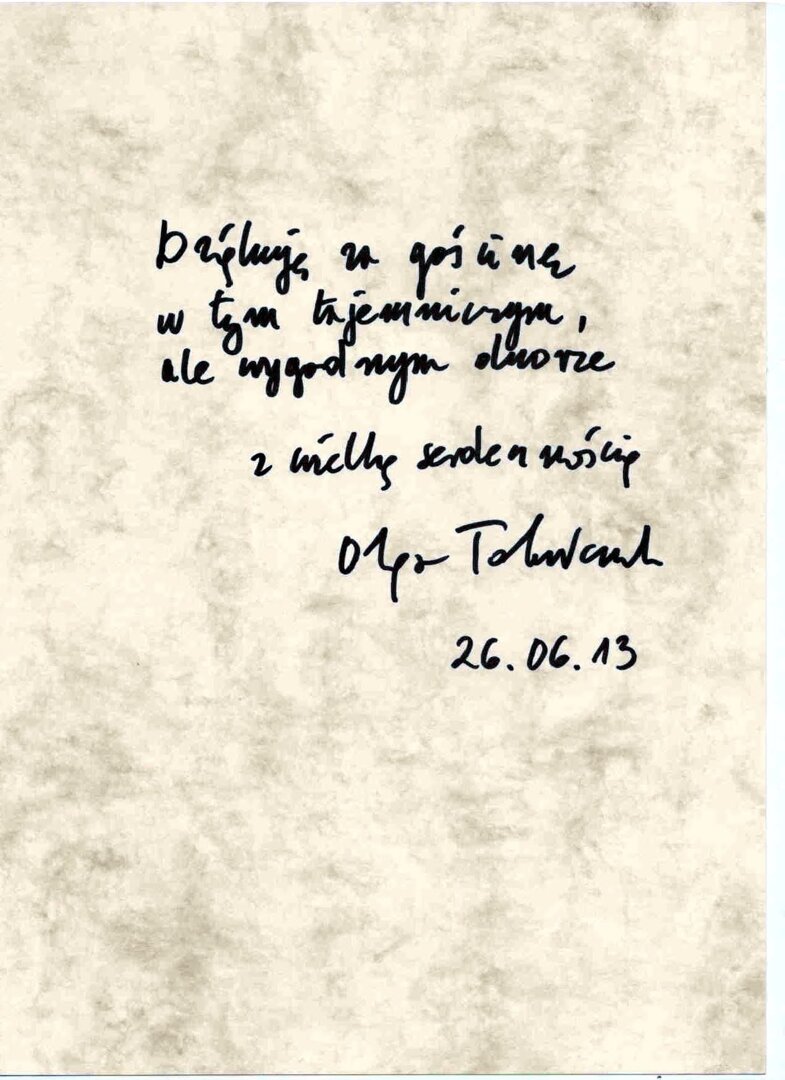 Dziękuję za gościnę
w tym tajemniczym,
ale wygodnym dworze
z wielką serdecznością
Olga Tokarczuk
26.06.13